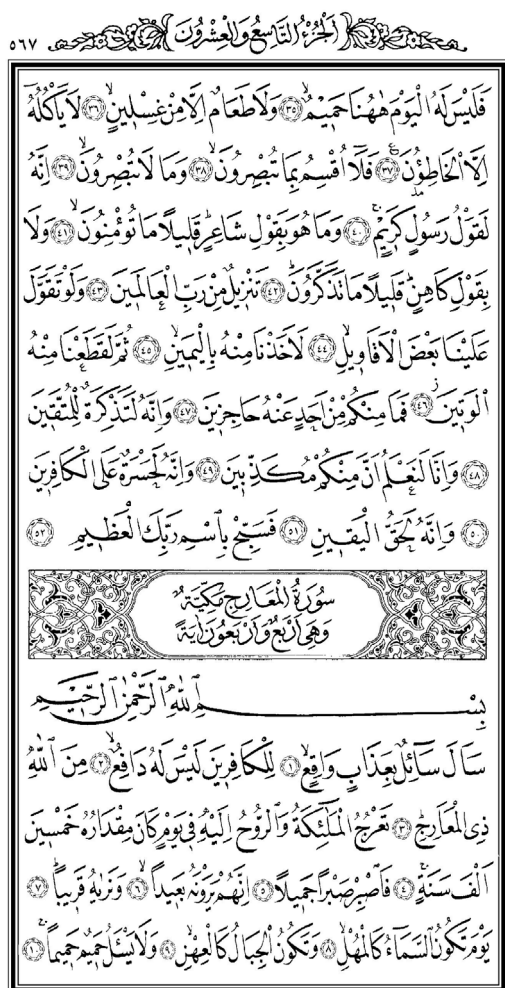 اَلْجُزْءُ التَّاسِعُ وَالْعِشْرُونَ ٥٦٧
فَلَيْسَ لَهُ الْيَوْمَ هٰهُنَا حَمِيمٌۙ ﴿٣٥﴾ وَلَا طَعَامٌ اِلَّا مِنْ غِسْلِينٍۙ ﴿٣٦﴾ لَا يَأْكُلُهُٓ
اِلَّا الْخَاطِؤُ۫نَ۟ ﴿٣٧﴾ فَلَٓا اُقْسِمُ بِمَا تُبْصِرُونَۙ ﴿٣٨﴾ وَمَا لَا تُبْصِرُونَۙ ﴿٣٩﴾ اِنَّهُ
لَقَوْلُ رَسُولٍ كَرِيمٍۚ ﴿٤٠﴾ وَمَا هُوَ بِقَوْلِ شَاعِرٍۜ قَلِيلًا مَا تُؤْمِنُونَۙ ﴿٤١﴾ وَلَا
بِقَوْلِ كَاهِنٍۜ قَلِيلًا مَا تَذَكَّرُونَۜ ﴿٤٢﴾ تَنْزِيلٌ مِنْ رَبِّ الْعَالَمِينَ ﴿٤٣﴾ وَلَوْ تَقَوَّلَ
عَلَيْنَا بَعْضَ الْاَقَاوِيلِۙ ﴿٤٤﴾ لَاَخَذْنَا مِنْهُ بِالْيَمِينِۙ ﴿٤٥﴾ ثُمَّ لَقَطَعْنَا مِنْهُ
الْوَتِينَۘ ﴿٤٦﴾ فَمَا مِنْكُمْ مِنْ اَحَدٍ عَنْهُ حَاجِزِينَ ﴿٤٧﴾ وَاِنَّهُ لَتَذْكِرَةٌ لِلْمُتَّقِينَ
﴿٤٨﴾ وَاِنَّا لَنَعْلَمُ اَنَّ مِنْكُمْ مُكَذِّبِينَ ﴿٤٩﴾ وَاِنَّهُ لَحَسْرَةٌ عَلَى الْكَافِرِينَ
﴿٥٠﴾ وَاِنَّهُ لَحَقُّ الْيَقِينِ ﴿٥١﴾ فَسَبِّحْ بِاسْمِ رَبِّكَ الْعَظِيمِ ﴿٥٢﴾
سُورَةُ الْمَعَارِجِ مَكِّيَّةٌ
وَهِيَ اَرْبَعٌ وَاَرْبَعُونَ اٰيَةً
بِسْمِ اللّٰهِ الرَّحْمٰنِ الرَّحِيمِ
سَاَلَ سَٓائِلٌ بِعَذَابٍ وَاقِعٍۙ ﴿١﴾ لِلْكَافِرِينَ لَيْسَ لَهُ دَافِعٌۙ ﴿٢﴾ مِنَ اللّٰهِ
ذِي الْمَعَارِجِۜ ﴿٣﴾ تَعْرُجُ الْمَلٰٓئِكَةُ وَالرُّوحُ اِلَيْهِ فِي يَوْمٍ كَانَ مِقْدَارُهُ خَمْسِينَ
اَلْفَ سَنَةٍۚ ﴿٤﴾ فَاصْبِرْ صَبْرًا جَمِيلًا ﴿٥﴾ اِنَّهُمْ يَرَوْنَهُ بَعِيدًاۙ ﴿٦﴾ وَنَرٰيهُ قَرِيبًاۜ ﴿٧﴾
يَوْمَ تَكُونُ السَّمَٓاءُ كَالْمُهْلِۙ ﴿٨﴾ وَتَكُونُ الْجِبَالُ كَالْعِهْنِۙ ﴿٩﴾ وَلَا يَسْـَٔلُ حَمِيمٌ حَمِيمًاۚ ﴿١٠﴾